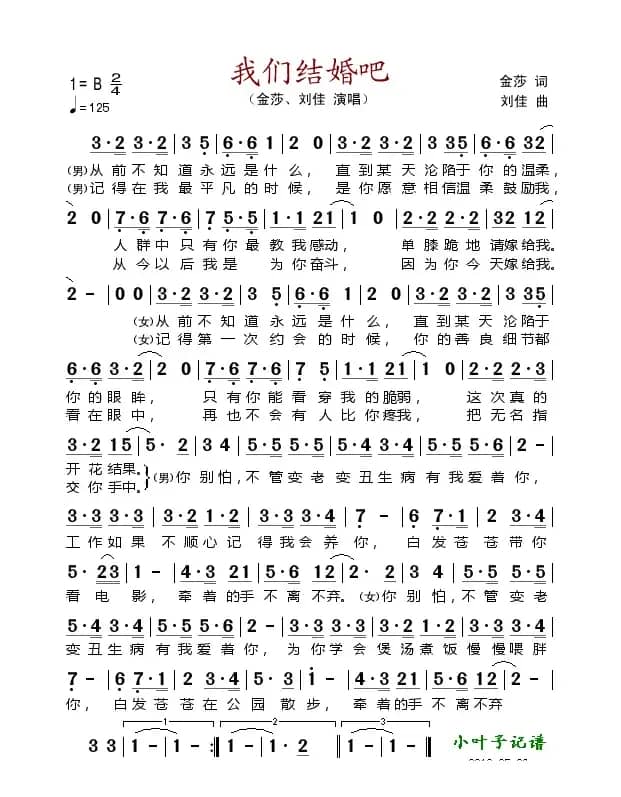 我们结婚吧
1= B 2/4
♩=125
（金莎、刘佳 演唱）
金莎 词
刘佳 曲
3·2 3·2 | 3 5 | 6·6 6·6 | 1 2 0 | 3·2 3·2 | 3 33 5 | 6·6 3·2 |
(男)从 前 不 知 道 永 远 是 什 么， 直 到 某 天 沦陷于 你 的 温柔，
(男)记 得 在 我 最 平 凡 的 时 候， 是 你 愿 意 相信温 柔 鼓励我，
2 0 | 7·6 7·6 | 7 5·5 | 1·1 21 | 1 0 | 2·2 2·2 | 32 12 |
人 群 中 只 有 你 最 教 我 感动， 单 膝 跪 地 请嫁 给我。
从 今 以 后 我 是 为 你 奋斗， 因 为 你 今 天嫁 给我。
2 - | 0 0 | 3·2 3·2 | 3 5 | 6·6 | 1 2 0 | 3·2 3·2 | 3 35 |
(女)从 前 不 知 道 永 远 是 什 么， 直 到 某 天 沦 陷于
(女)记 得 第 一 次 约 会 的 时 候， 你 的 善 良 细 节都
6·6 3·2 | 2 0 | 7·6 7·6 | 7 5 | 1·1 21 | 1 0 | 2·2 2·2 |
你 的 眼 眸， 只 有 你 能 看 穿 我 的 脆弱， 这 次 真 的
看 在 眼 中， 再 也 不 会 有 人 比 你 疼我， 把 无 名 指
3·2 15 | 5· 2 | 3 4 | 5·5 5·5 | 5·4 3·4 | 5·5 5·6 | 2 - |
开 花 结果。
交 你 手中。
(男)你 别 怕，不 管 变 老 变 丑 生 病 有 我 爱 着 你，
3·3 3·3 | 3·2 1·2 | 3·3 3·4 | 7 - | 6 7·1 | 2 3·4 |
工 作 如 果 不 顺 心 记 得 我 会 养 你， 白 发 苍 苍 带 你
5· 23 | 1 - | 3·4 21 | 5·6 12 | 2· 2 | 3 4 | 5·5 5·5 |
看 电 影， 牵 着 的手 不 离 不弃。(女)你 别 怕，不 管 变 老
5·4 3·4 | 5·5 5·6 | 2 - | 3·3 3·3 | 3·2 1·2 | 3·3 3·4 |
变 丑 生 病 有 我 爱 着 你， 为 你 学 会 煲 汤 煮 饭 慢 慢 喂 胖
7 - | 6 7·1 | 2 3·4 | 5· 3 | 1 - | 3·4 21 | 5·6 12 | 2 0 |
你， 白 发 苍 苍 在 公 园 散 步， 牵 着 的手 不 离 不弃
1 2 3
3 3 | 1 - | 1 - :| 1 - | 1· 2 | 1 - | 1 - ‖
小叶子记谱